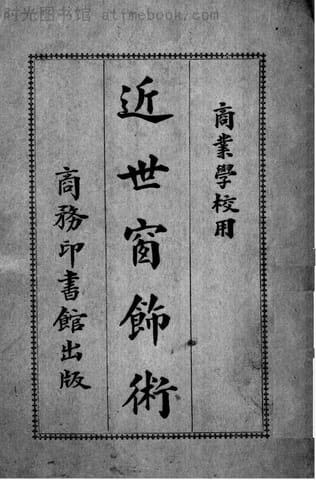 时光图书馆 atimebook.com
商業學校用
近世窗飾術
商務印書館出版